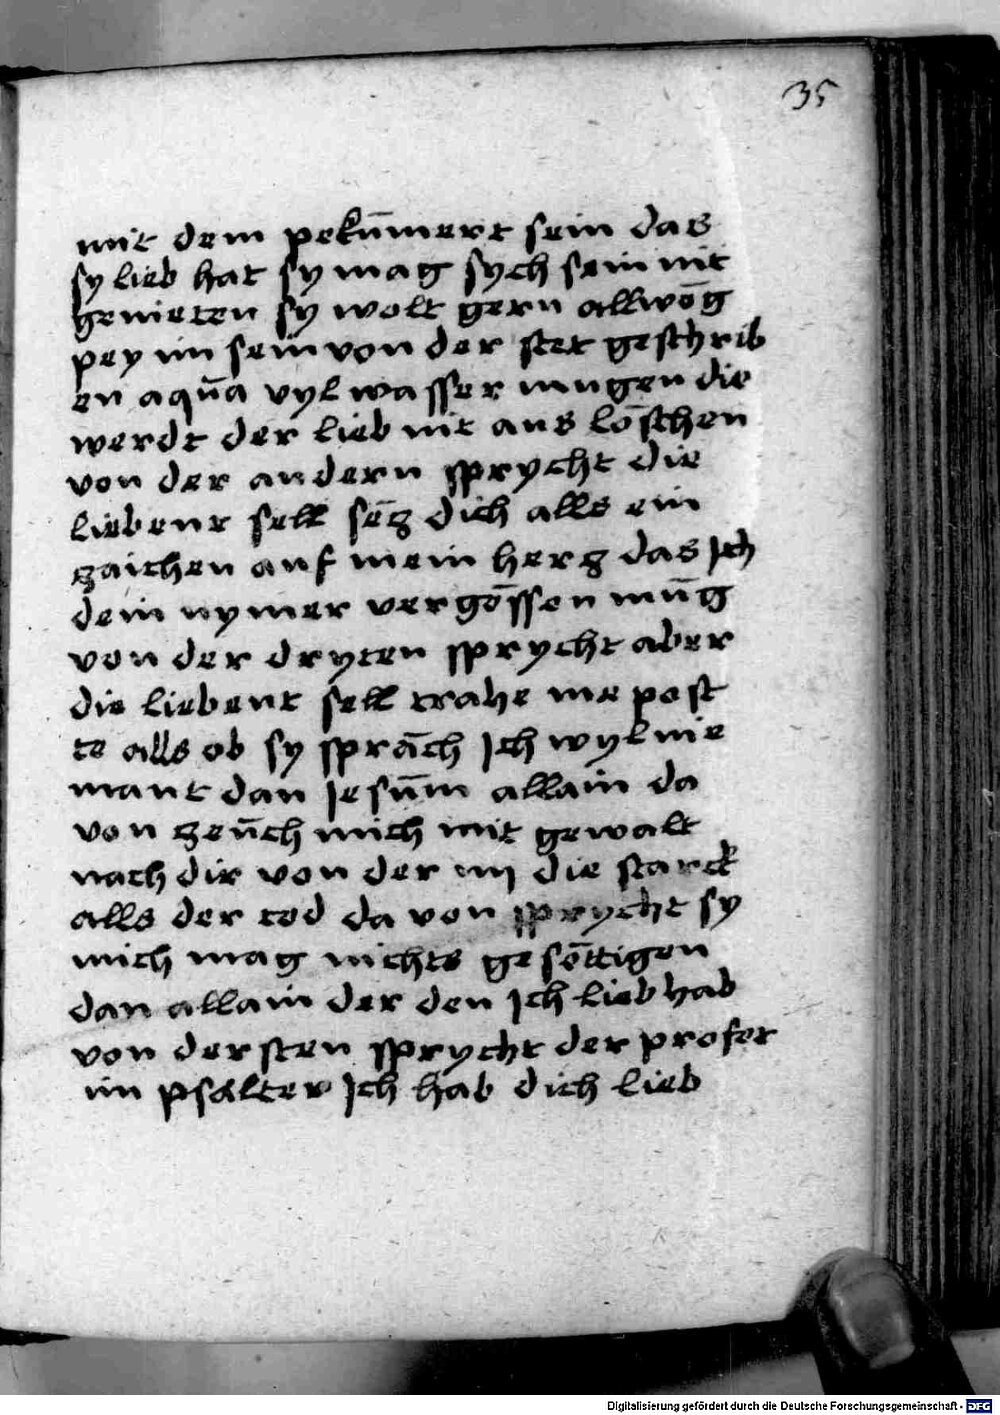 35
mit dem pekūmert sein das
sy lieb hat sy mag sych sein nit
genieten sy wolt gern allwōg
pey im sein von der stet geschrib
en aqūa vyl wasser mugen die
werdt der lieb nit aus lōschen
von der andern sprycht die
liebent sell sēcz dich alls ein
zaichen auf mein hercz das Ich
dein nymer vergōssen mūg
von der dryten sprycht aber
die liebent sell trahe me post
te alls ob sy sprāch Ich wyl nie
mant dan Jesūm allain da
von zeūch mich mit gewalt
nach dir von der iiij die starck
alls der tod da von sprycht sy
mich mag nichts gesōttigen
dan allain der den Ich lieb hab
von der sten sprycht der profet
im psalter Ich hab dich lieb
Digitalisierung gefördert durch die Deutsche Forschungsgemeinschaft - DFG